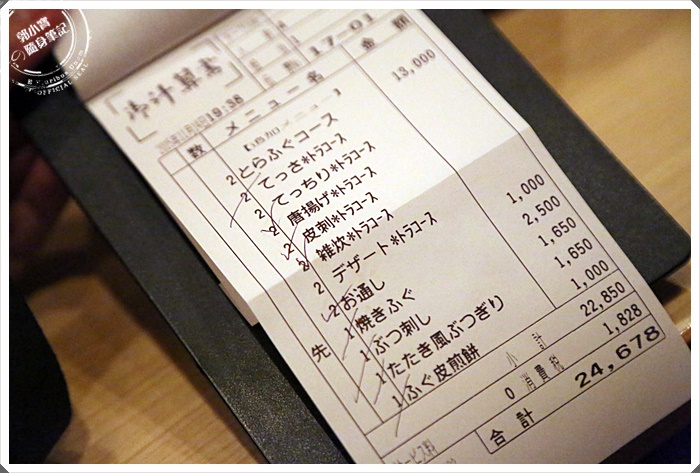 郭小寶
の隨身筆記
OFFICIAL SEAL
御計算書
19:38
17-01
数 メニュー名 金額
2 とらふぐコース 13,000
2 てっさ*トラコース
2 てっちり*トラコース
2 唐揚げ*トラコース
2 皮刺*トラコース
2 雑炊*トラコース
2 デザート*トラコース
2 お通し 1,000
1 焼きふぐ 2,500
1 ぶつ刺し 1,650
1 たたき風ぶつぎり 1,650
1 ふぐ皮煎餅 1,000
先
小計 22,850
0 消費税 1,828
サービス料
合計 24,678